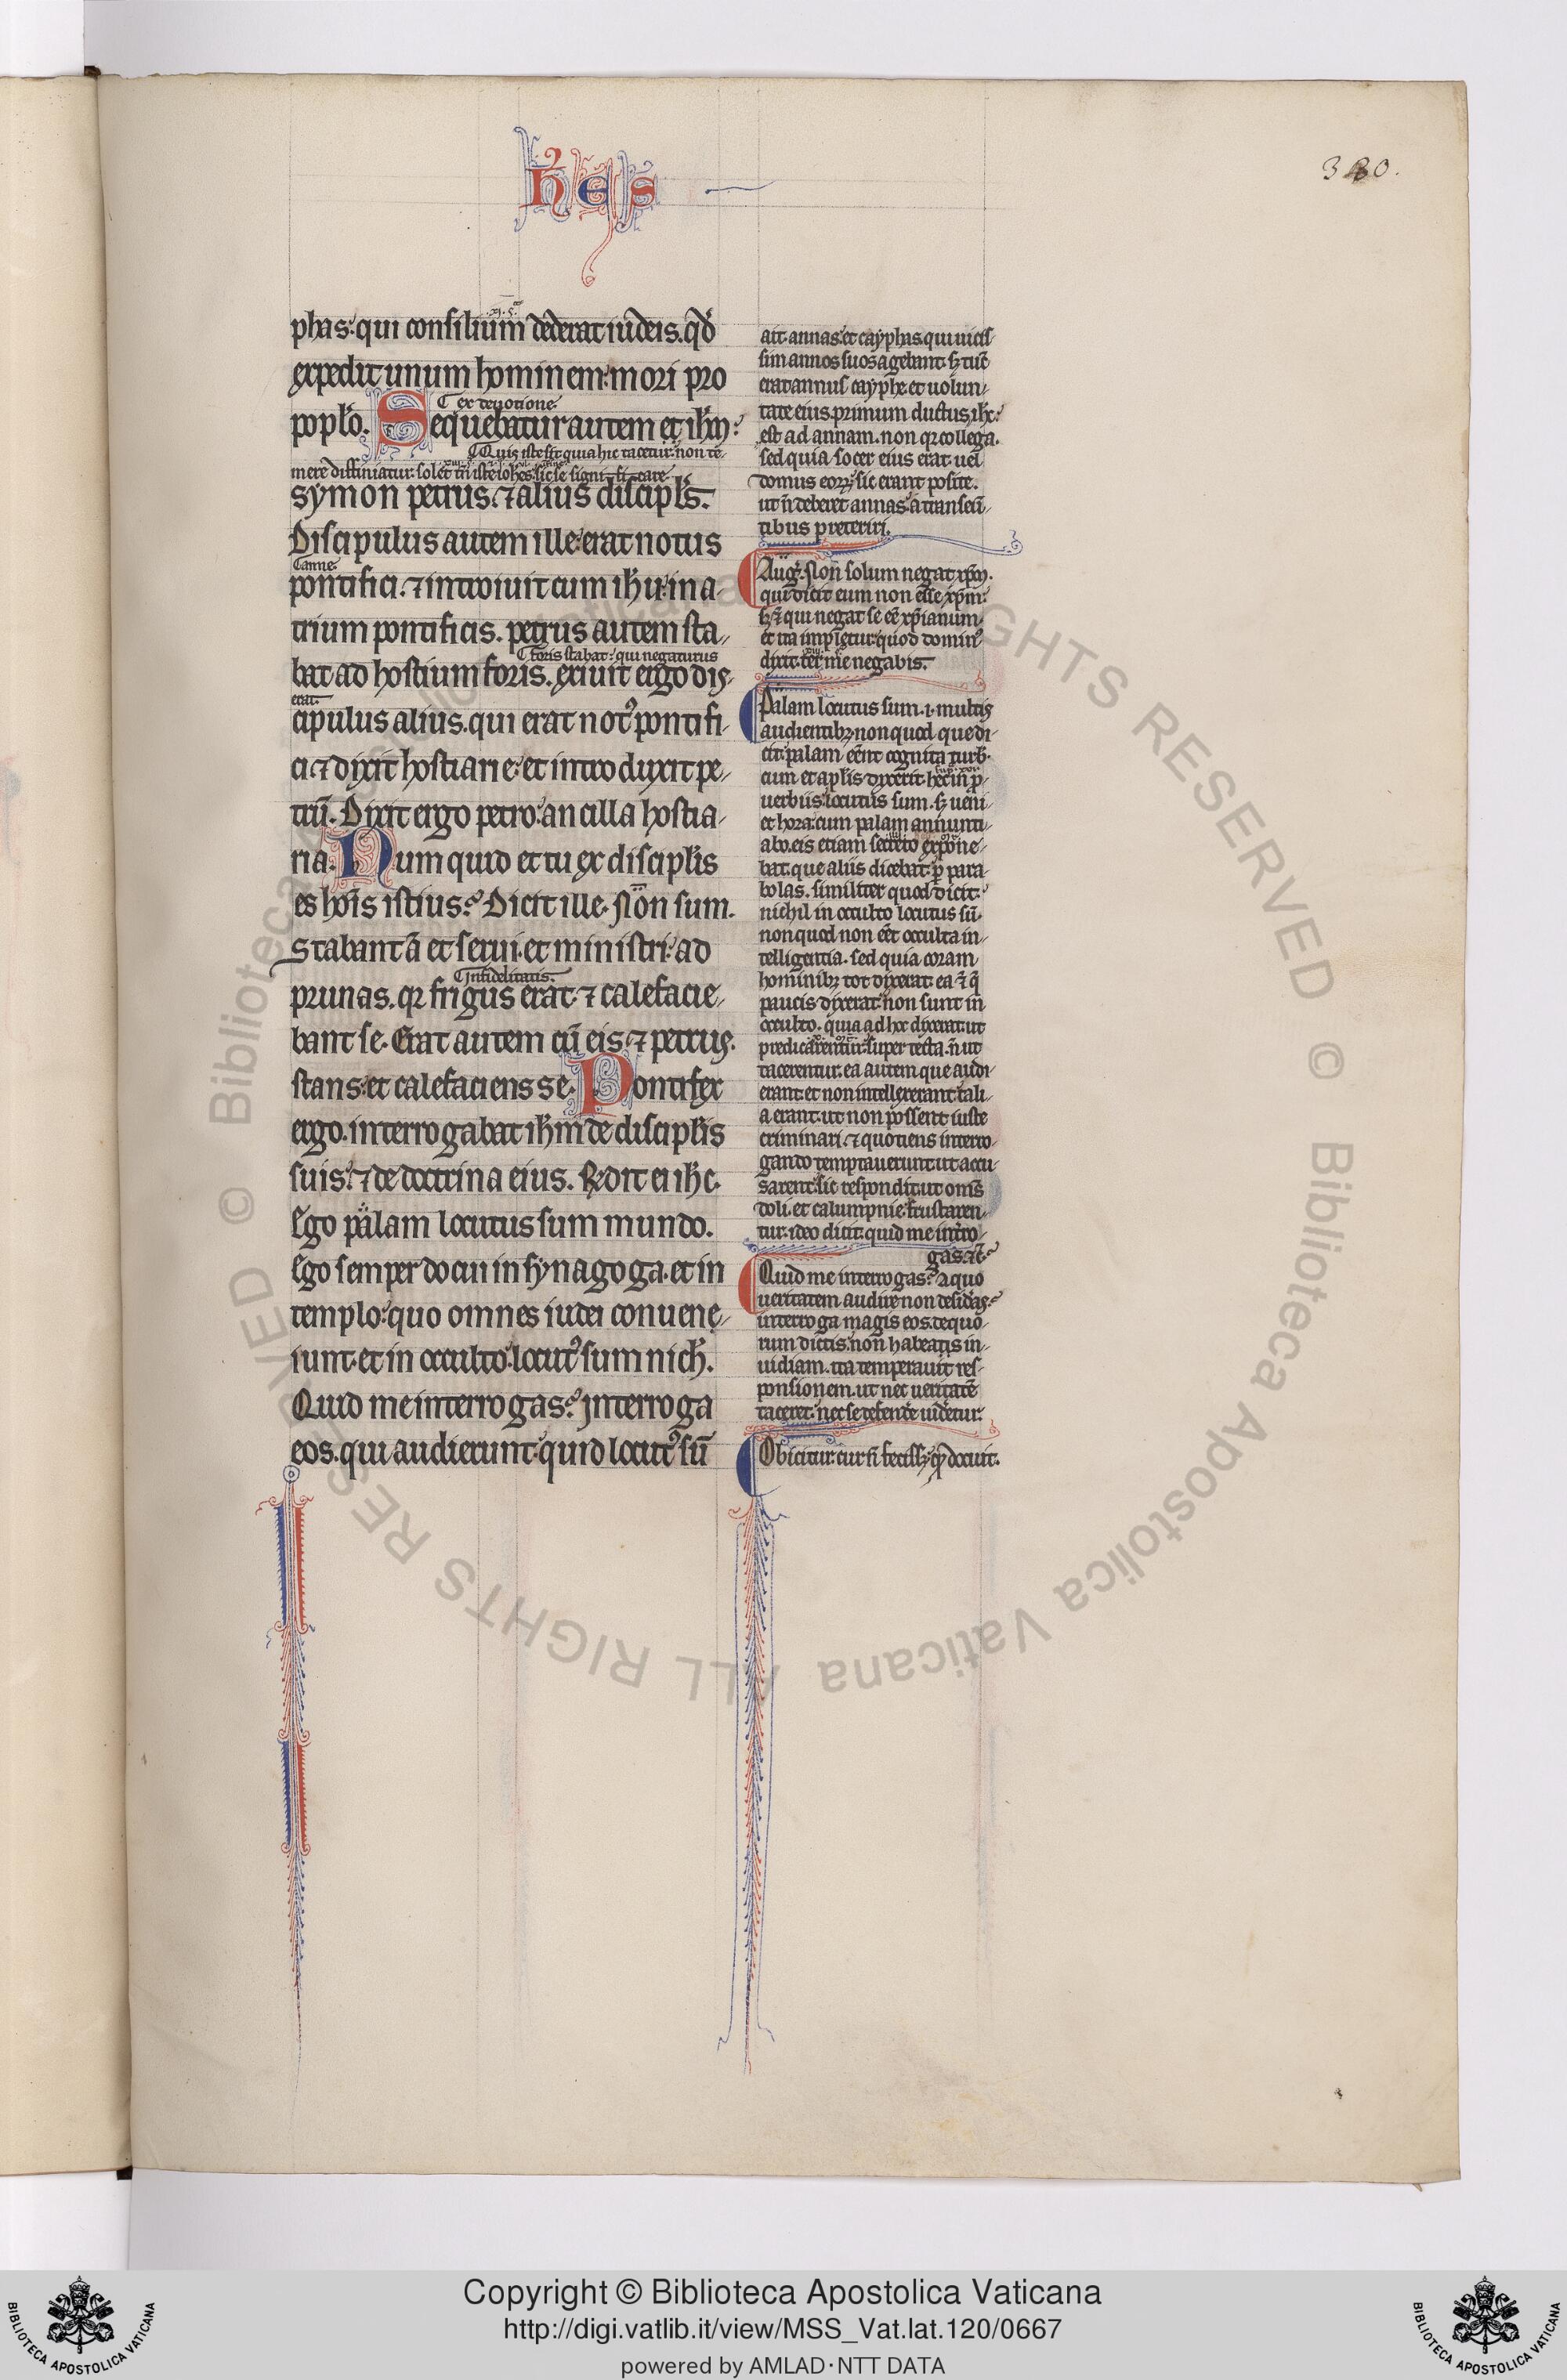 hẽs
330.
phas. qui consilium dederat iudeis. qđ
expedit unum hominem mori pro
poplo. Sequebatur autem et ihm
ex deuotione.
Quis iste sit quia hic tacetur. non te-
mere diffiniatur. solet tñ iste iohes sic se significare
symon petrus. ⁊ alius discipls.
Discipulus autem ille erat notus
anne.
pontifici. ⁊ introiuit cum ihu in a-
trium pontificis. petrus autem sta-
foris stabat. qui negaturus
bat ad hostium foris. exiuit ergo dis-
erat.
cipulus alius. qui erat notꝰ pontifi-
ci. ⁊ dixit hostiarie. et introduxit pe-
trũ. Dixit ergo petro ancilla hostia-
ria. Num quid et tu ex disciplis
es hois istius? Dicit ille. Non sum.
Stabant ã et serui. et ministri ad
Infidelitatis.
prunas. qr frigus erat. ⁊ calefacie-
bant se. Erat autem cũ eis ⁊ petrus.
stans. et calefaciens se. Pontifex
ergo. interrogabat ihm de disciplis
suis. ⁊ de doctrina eius. Rñdit ei ihc.
Ego palam locutus sum mundo.
Ego semper docui in synagoga. et in
templo. quo omnes iudei conuene-
iunt. et in occulto locutꝰ sum nich.
Quid me interrogas? Interroga
eos. qui audierunt. quid locutꝰ sũ
ait. annas. et cayphas. qui uicis-
sim annos suos agebant. sꝫ tũc
erat annus cayphe. et uolun-
tate eius. primum ductus ihc.
est ad annam. non qr collega.
sed quia socer eius erat. uel
domus eoꝝ. sic erant posite.
ut ñ deberet annas. a transeũ-
tibus preteriri.
Aug. Non solum negat xpm.
qui dicit eum non esse xpm.
sꝫ ⁊ qui negat se ee xpianum.
et ita impletur. quod dominꝰ
dixit. ter me negabis.
Palam locutus sum. i. multis
audientibꝫ. non quod que di-
cit. palam eent cognita turb.
cum et aplis dixerit. hec in p-
uerbiis locutus sum. sꝫ ueni-
et hora. cum palam annunti-
abo. eis etiam secreto expone-
bat. que aliis dicebat. p para-
bolas. similiter quod dicit.
nichil in occulto locutus sũ.
non quod non eet occulta in-
telligentia. sed quia coram
hominibꝫ tot dixerat. ea ⁊ q̃
paucis dixerat. non sunt in
occulto. quia ad hoc dixerat. ut
predicarentur. super tecta. ñ ut
tacerentur. ea autem que audi-
erant. et non intellexerant. tali-
a erant. ut non possent iuste
criminari. ⁊ quotiens interro-
gando temptauerunt. ut accu-
sarent. sic respondit. ut oms
doli. et calumpnie frustaren-
tur. ideo dicit. quid me intro-
gas. ⁊c.
Quid me interrogas? a quo
ueritatem audire non desidas.
interroga magis eos. de quo-
rum dictis. non habeatis in-
uidiam. ita temperauit res-
ponsionem. ut nec ueritatẽ
taceret. nec se defendẽ uidetur.
Obicitur. cur ñ fecissꝫ. qđ docuit.
Copyright © Biblioteca Apostolica Vaticana
http://digi.vatlib.it/view/MSS_Vat.lat.120/0667
powered by AMLAD·NTT DATA
BIBLIOTECA APOSTOLICA VATICANA
BIBLIOTECA APOSTOLICA VATICANA
© Biblioteca Apostolica Vaticana ALL RIGHTS RESERVED © Biblioteca Apostolica Vaticana ALL RIGHTS RESERVED